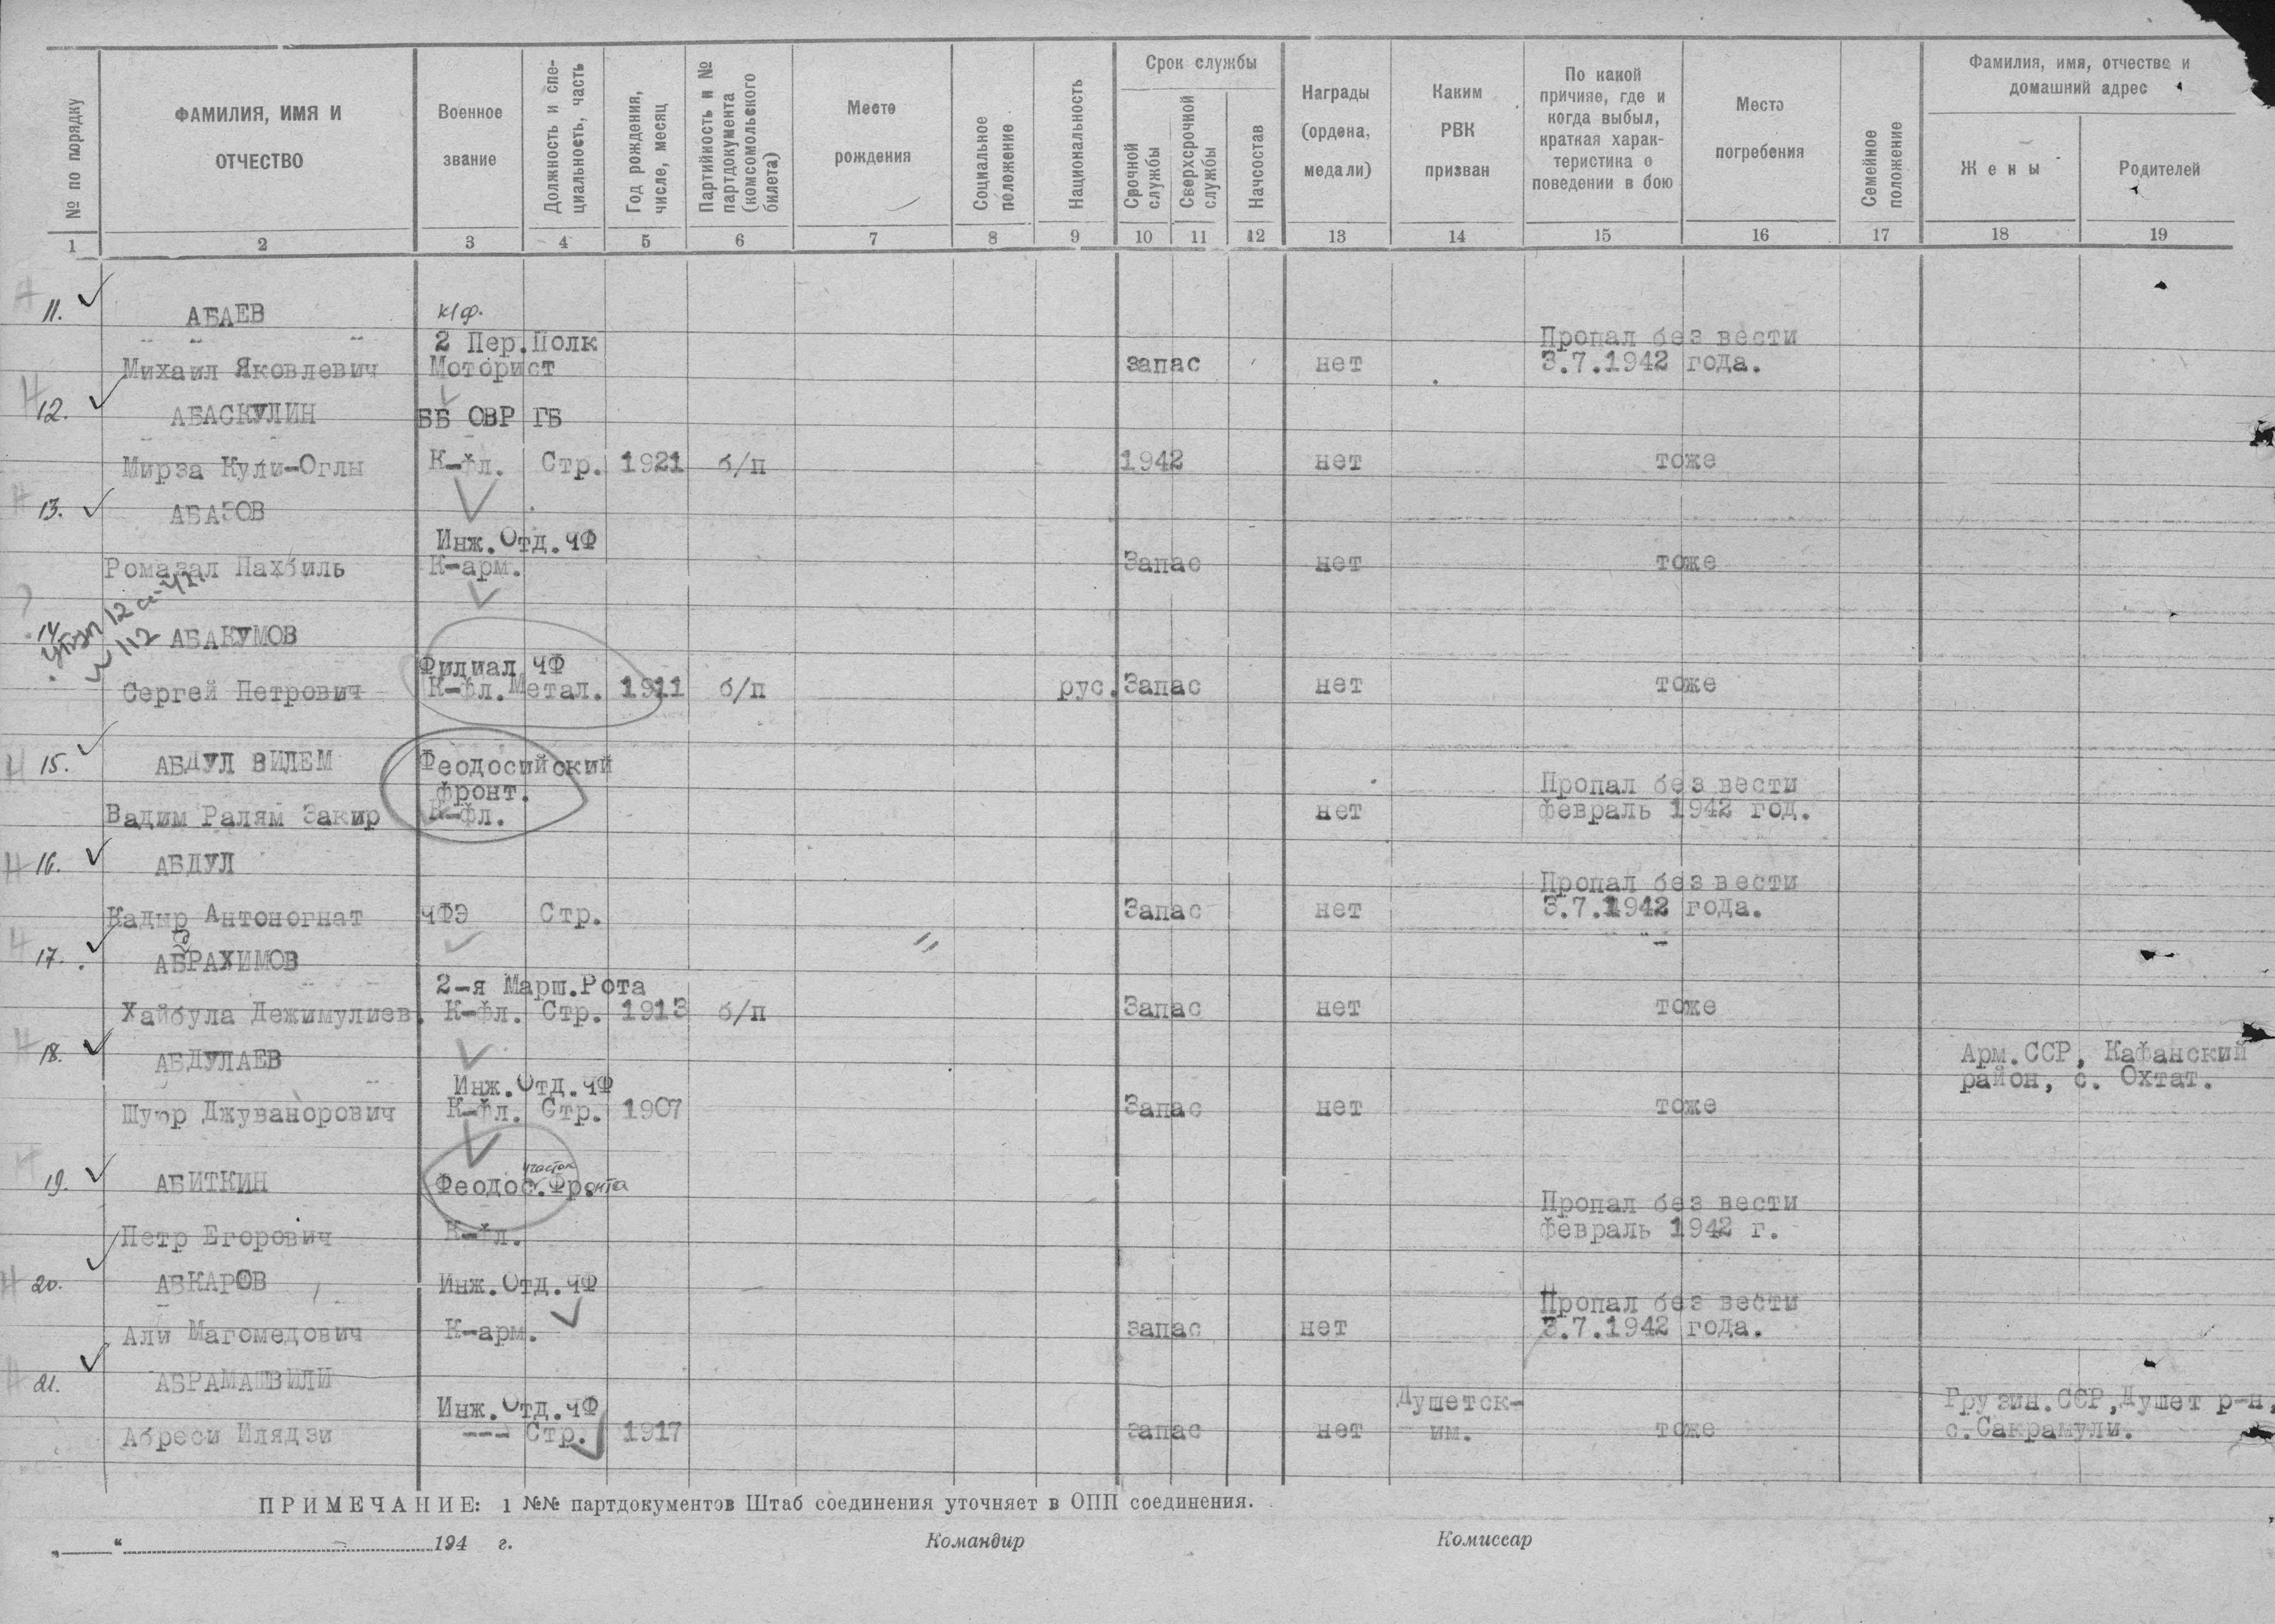 № по порядку
ФАМИЛИЯ, ИМЯ И ОТЧЕСТВО
Военное звание
Должность и специальность, часть
Год рождения, число, месяц
Партийность и № партдокумента (комсомольского билета)
Место рождения
Социальное положение
Национальность
Срок службы
Срочной службы
Сверхсрочной службы
Начсостав
Награды (ордена, медали)
Каким РВК призван
По какой причине, где и когда выбыл, краткая характеристика о поведении в бою
Место погребения
Семейное положение
Фамилия, имя, отчество и домашний адрес
Жены
Родителей
1 2 3 4 5 6 7 8 9 10 11 12 13 14 15 16 17 18 19
11. АБАЕВ к/ф.
2 Пер.Полк Пропал без вести
Михаил Яковлевич Моторист запас нет 3.7.1942 года.
12. АБАСКУЛИН ББ ОВР ГБ
Мирза Кули-Оглы К-фл. Стр. 1921 б/п 1942 нет тоже
13. АБАЗОВ
Инж.Отд.ЧФ
Ромазал Пахбиль К-арм. Запас нет тоже
14. АБАКУМОВ
Филиал ЧФ
Сергей Петрович К-фл. Метал. 1911 б/п рус. Запас нет тоже
15. АБДУЛ ВИЛЕМ Феодосийский
фронт. Пропал без вести
Вадим Ралям Закир К-фл. нет февраль 1942 год.
16. АБДУЛ
Пропал без вести
Кадыр Антоногнат ЧФЭ Стр. Запас нет 3.7.1942 года.
17. АБРАХИМОВ
2-я Марш.Рота
Хайбула Дежимулиев. К-фл. Стр. 1913 б/п Запас нет тоже
18. АБДУЛАЕВ Арм.ССР, Кафанский
Инж.Отд.ЧФ район, с. Охтат.
Шуюр Джуванорович К-фл. Стр. 1907 Запас нет тоже
19. АБИТКИН Феодос. участок Фронта
Пропал без вести
Петр Егорович К-фл. февраль 1942 г.
20. АБКАРОВ Инж.Отд.ЧФ
Пропал без вести
Али Магомедович К-арм. запас нет 3.7.1942 года.
21. АБРАМАШВИЛИ
Инж.Отд.ЧФ Душетск- Грузин.ССР, Душет р-н,
Абреси Илядзи --- Стр. 1917 запас нет им. тоже с.Сакрамули.
ПРИМЕЧАНИЕ: 1 №№ партдокументов Штаб соединения уточняет в ОПП соединения.
„____“ ____ 194 г. Командир Комиссар